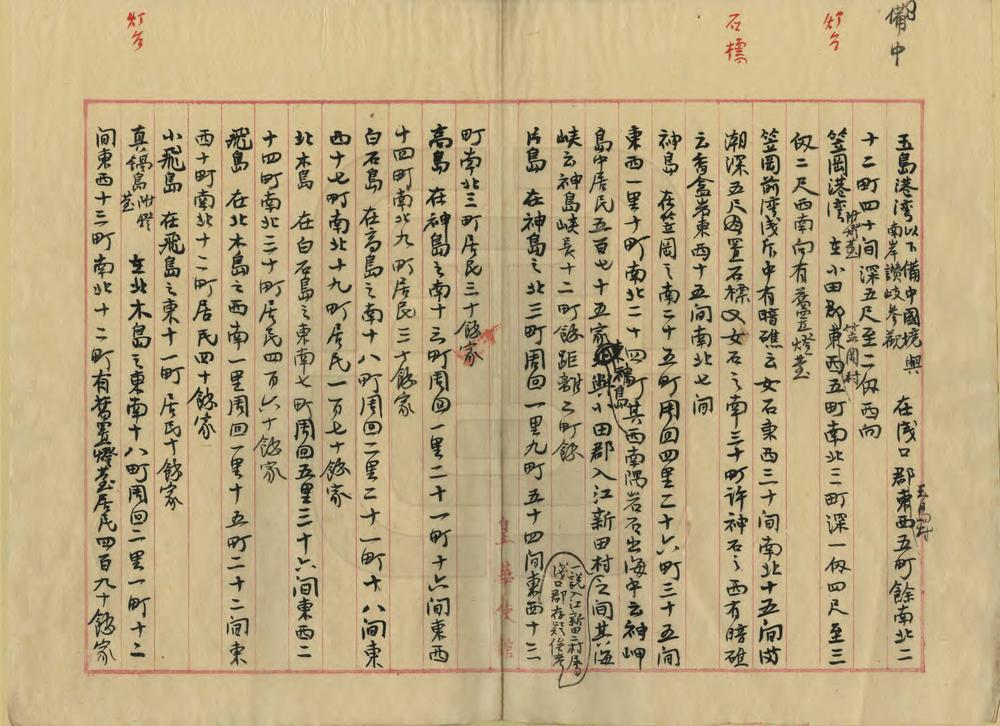 備中
灯台
石標
灯台
玉島港湾 以下備中國境與南岸讃岐参観 在浅口郡玉島村東西五町餘南北二
十二町四十间深五尺至二仭西向
笠岡港湾 附燈䑓 在小田郡笠岡村東西五町南北三町深一仭四尺至三
仭二尺西南向有舊置燈䑓
笠岡前湾浅斥中有暗礁云女石東西三十间南北十五间満
潮深五尺因置石標又女石之南三十町許神石之西有暗礁
云香盒岩東西十五间南北七间
神島 在笠岡之南二十五町周回四里二十六町三十五间
東西一里十町南北二十四町其西南隅岩石出海中云神岬
島中居民五百七十五家東神島與小田郡入江新田村之间其海
峡云神島峡長十二町餘距離二町餘
一説入江新田二村属浅口郡存疑俟考
片島 在神島之北三町周回一里九町五十四间東西十三
町南北三町居民三十餘家
高島 在神島之南十三町周回一里二十一町十六间東西
十四町南北九町居民三十餘家
白石島 在高島之南十八町周回二里二十一町十八间東
西十七町南北十九町居民一百七十餘家
北木島 在白石島之東南七町周回五里三十六间東西二
十四町南北三十町居民四百六十餘家
飛島 在北木島之西南一里周回一里十五町二十二间東
西十町南北十二町居民四十餘家
小飛島 在飛島之東十一町居民十餘家
真鍋島 附燈䑓 在北木島之東南十八町周回二里一町十二
间東西十三町南北十二町有舊置燈䑓居民四百九十餘家